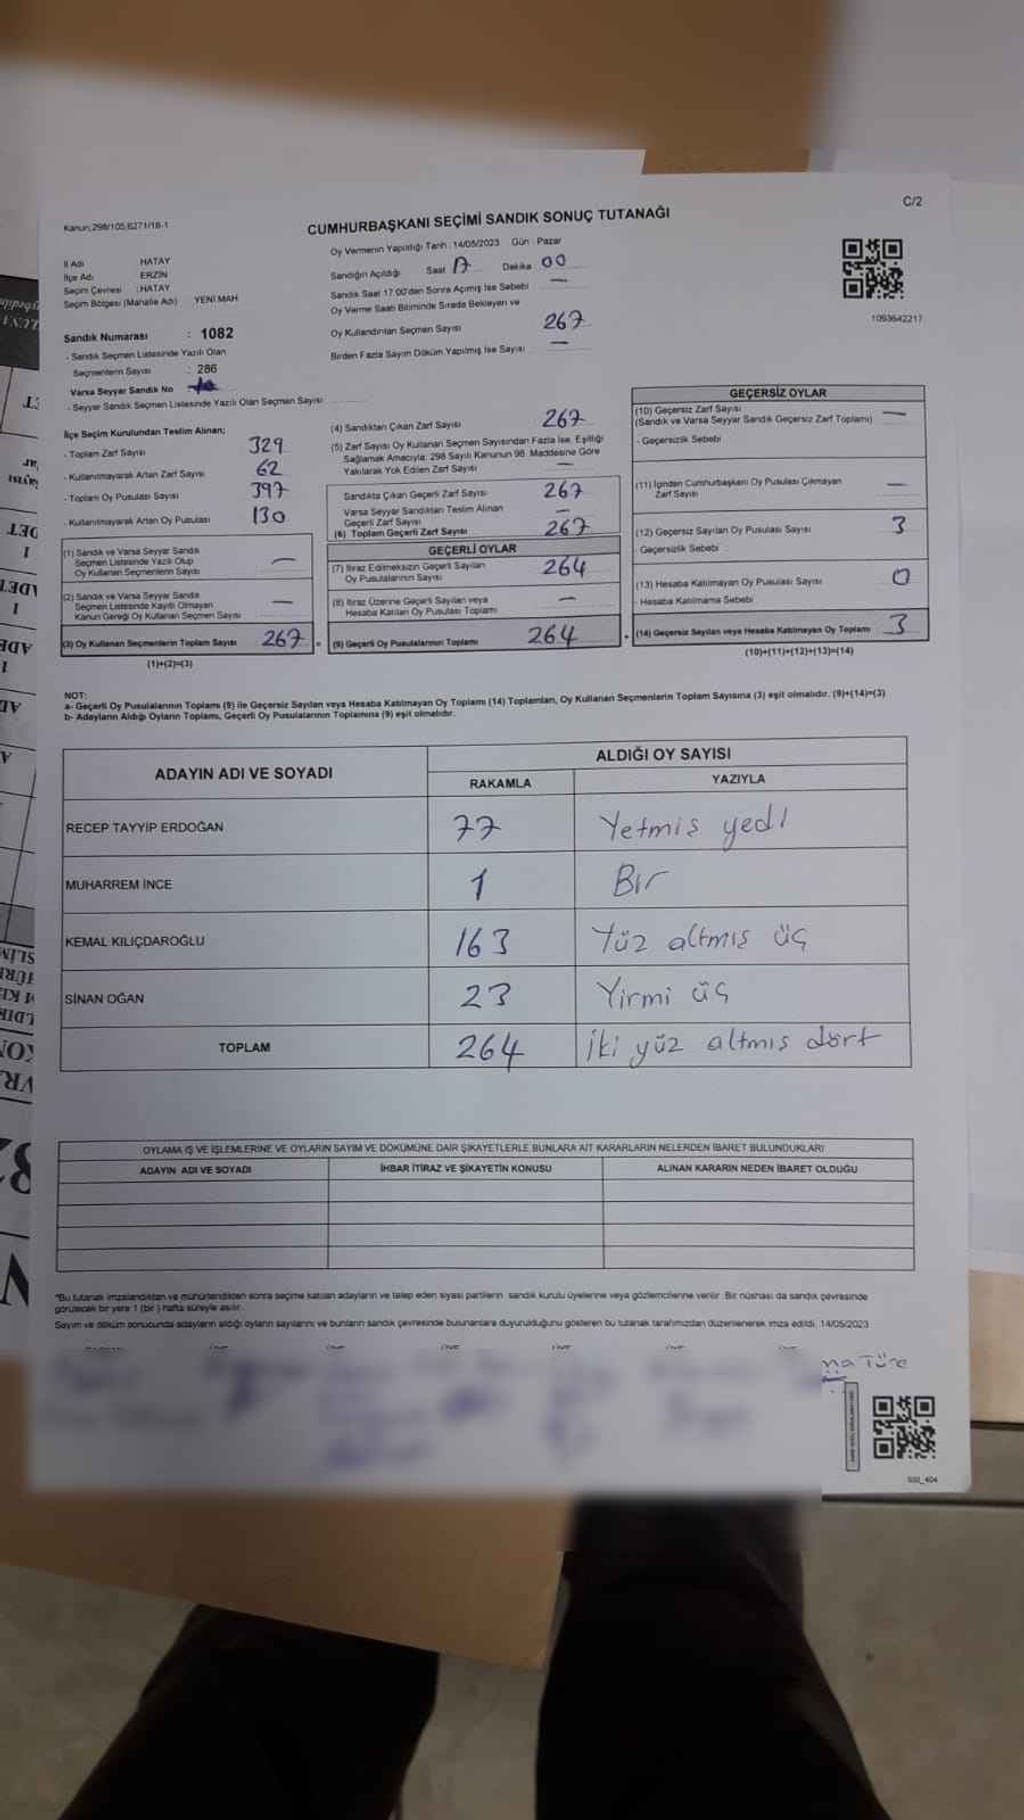 C/2
Kanun:298/105,6271/18-1
CUMHURBAŞKANI SEÇİMİ SANDIK SONUÇ TUTANAĞI
Oy Vermenin Yapıldığı Tarih : 14/05/2023 Gün : Pazar
İl Adı HATAY
İlçe Adı ERZİN
Seçim Çevresi : HATAY
Seçim Bölgesi (Mahalle Adı) YENİ MAH
Sandığın Açıldığı Saat 17 Dakika 00
Sandık Saat 17:00'dan Sonra Açılmış İse Sebebi —
Oy Verme Saati Bitiminde Sırada Bekleyen ve
Oy Kullandırılan Seçmen Sayısı 267
Birden Fazla Sayım Döküm Yapılmış İse Sayısı —
1093642217
Sandık Numarası : 1082
- Sandık Seçmen Listesinde Yazılı Olan
Seçmenlerin Sayısı : 286
Varsa Seyyar Sandık No
- Seyyar Sandık Seçmen Listesinde Yazılı Olan Seçmen Sayısı
İlçe Seçim Kurulundan Teslim Alınan;
- Toplam Zarf Sayısı 329
- Kullanılmayarak Artan Zarf Sayısı 62
- Toplam Oy Pusulası Sayısı 397
- Kullanılmayarak Artan Oy Pusulası 130
(1) Sandık ve Varsa Seyyar Sandık
Seçmen Listesinde Yazılı Olup
Oy Kullanan Seçmenlerin Sayısı —
(2) Sandık ve Varsa Seyyar Sandık
Seçmen Listesinde Kayıtlı Olmayan
Kanun Gereği Oy Kullanan Seçmen Sayısı —
(3) Oy Kullanan Seçmenlerin Toplam Sayısı 267
(1)+(2)=(3)
(4) Sandıktan Çıkan Zarf Sayısı 267
(5) Zarf Sayısı Oy Kullanan Seçmen Sayısından Fazla İse, Eşitliği
Sağlamak Amacıyla; 298 Sayılı Kanunun 98. Maddesine Göre
Yakılarak Yok Edilen Zarf Sayısı —
Sandıkta Çıkan Geçerli Zarf Sayısı 267
Varsa Seyyar Sandıktan Teslim Alınan
Geçerli Zarf Sayısı —
(6) Toplam Geçerli Zarf Sayısı 267
GEÇERLİ OYLAR
(7) İtiraz Edilmeksizin Geçerli Sayılan
Oy Pusulalarının Sayısı 264
(8) İtiraz Üzerine Geçerli Sayılan veya
Hesaba Katılan Oy Pusulası Toplamı —
(9) Geçerli Oy Pusulalarının Toplamı 264
GEÇERSİZ OYLAR
(10) Geçersiz Zarf Sayısı
(Sandık ve Varsa Seyyar Sandık Geçersiz Zarf Toplamı) —
- Geçersizlik Sebebi
(11) İçinden Cumhurbaşkanı Oy Pusulası Çıkmayan
Zarf Sayısı —
(12) Geçersiz Sayılan Oy Pusulası Sayısı 3
Geçersizlik Sebebi :
(13) Hesaba Katılmayan Oy Pusulası Sayısı 0
- Hesaba Katılmama Sebebi
(14) Geçersiz Sayılan veya Hesaba Katılmayan Oy Toplamı 3
(10)+(11)+(12)+(13)=(14)
NOT:
a- Geçerli Oy Pusulalarının Toplamı (9) ile Geçersiz Sayılan veya Hesaba Katılmayan Oy Toplamı (14) Toplamları, Oy Kullanan Seçmenlerin Toplam Sayısına (3) eşit olmalıdır. (9)+(14)=(3)
b- Adayların Aldığı Oyların Toplamı, Geçerli Oy Pusulalarının Toplamına (9) eşit olmalıdır.
ADAYIN ADI VE SOYADI ALDIĞI OY SAYISI
RAKAMLA YAZIYLA
RECEP TAYYİP ERDOĞAN 77 Yetmiş yedi
MUHARREM İNCE 1 Bir
KEMAL KILIÇDAROĞLU 163 Yüz altmış üç
SİNAN OĞAN 23 Yirmi üç
TOPLAM 264 İki yüz altmış dört
OYLAMA İŞ VE İŞLEMLERİNE VE OYLARIN SAYIM VE DÖKÜMÜNE DAİR ŞİKAYETLERLE BUNLARA AİT KARARLARIN NELERDEN İBARET BULUNDUKLARI
ADAYIN ADI VE SOYADI İHBAR İTİRAZ VE ŞİKAYETİN KONUSU ALINAN KARARIN NEDEN İBARET OLDUĞU
*Bu tutanak imzalandıktan ve mühürlendikten sonra seçime katılan adayların ve talep eden siyasi partilerin sandık kurulu üyelerine veya gözlemcilerine verilir. Bir nüshası da sandık çevresinde
görülecek bir yere 1 (bir) hafta süreyle asılır.
Sayım ve döküm sonucunda adayların aldığı oyların sayılarını ve bunların sandık çevresinde bulunanlara duyurulduğunu gösteren bu tutanak tarafımızdan düzenlenerek imza edildi. 14/05/2023